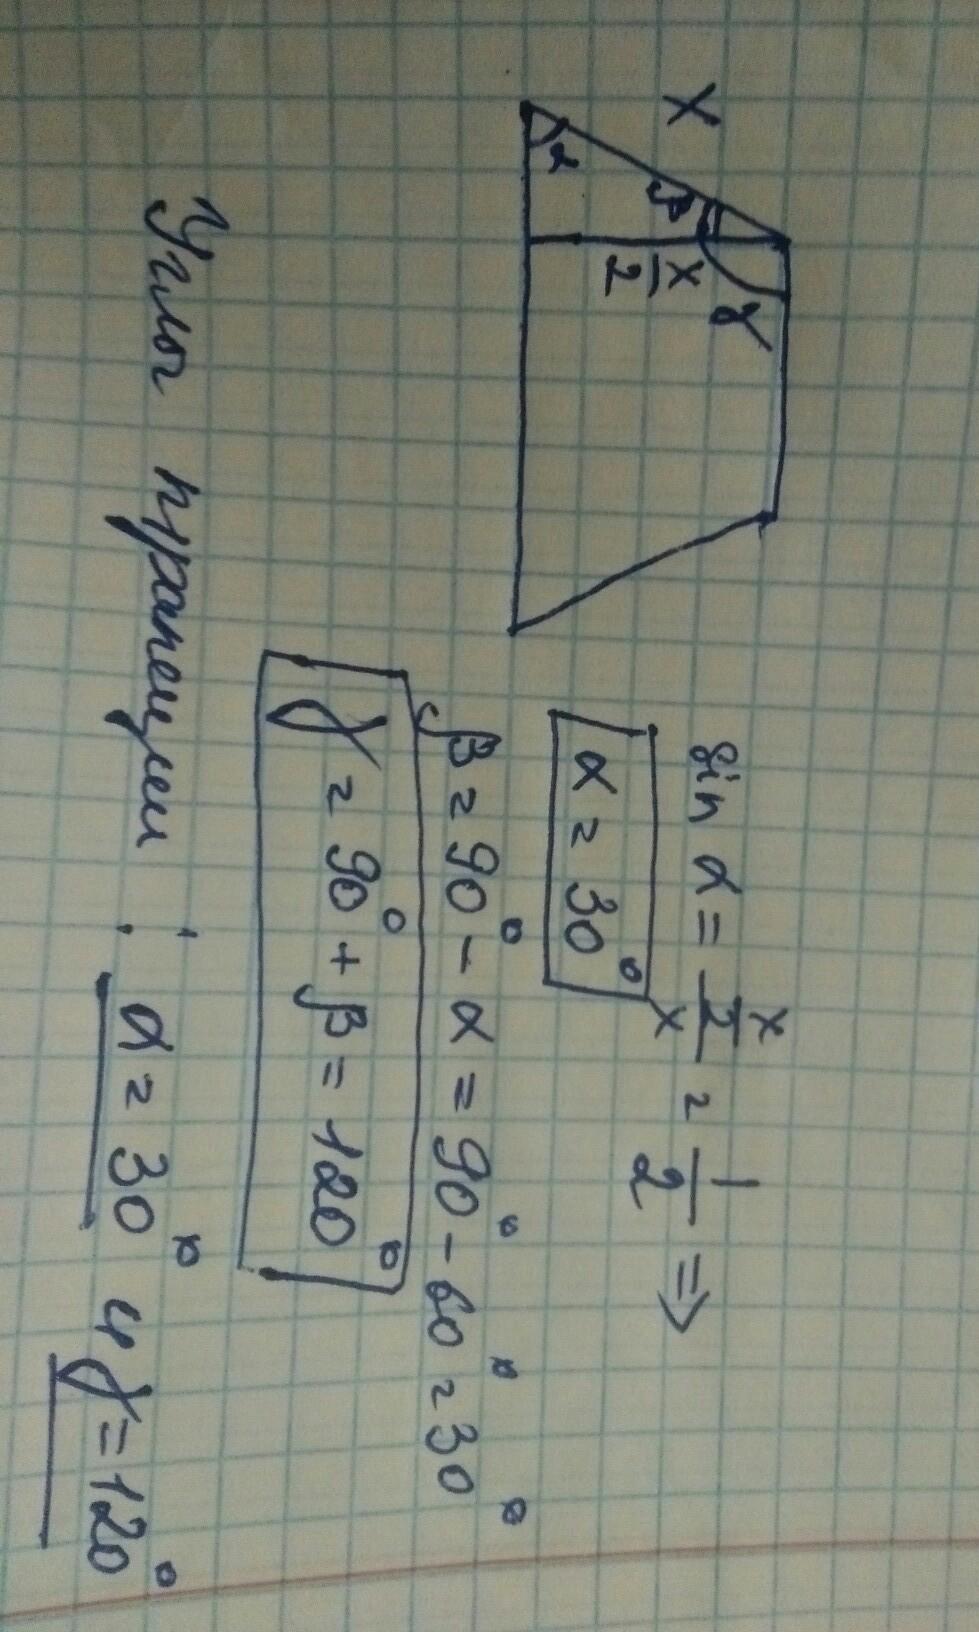 X
α
β
γ
x/2
sin α = (x/2)/x = 1/2 ⇒
α = 30°
β = 90° - α = 90° - 60° = 30°
γ = 90° + β = 120°
Углы трапеции : α = 30° и γ = 120°